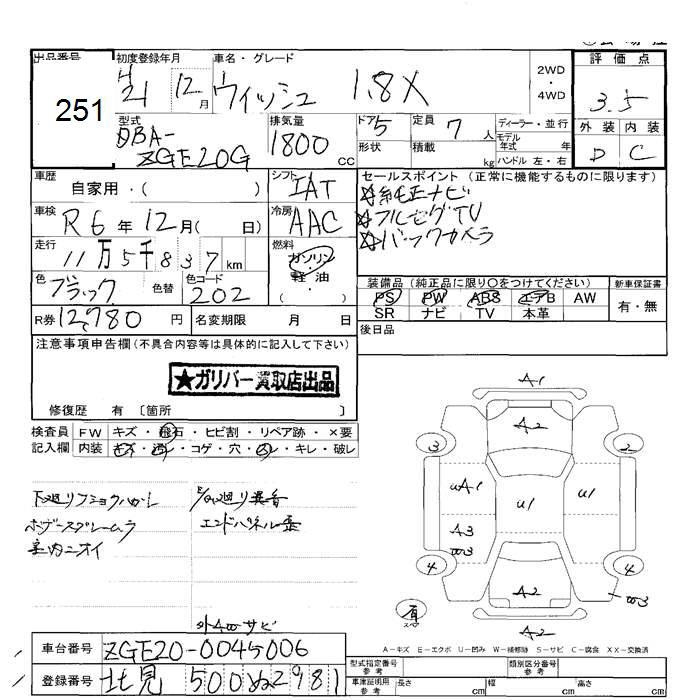 出品番号 初度登録年月 車名・グレード 評価点
251 H21 12月 ウィッシュ 1.8X 2WD・4WD 3.5
外装 内装
D C
型式 排気量 ドア 定員 ディーラー・並行
DBA-ZGE20G 1800cc 5 7人 モデル年式 年
形状 積載 kg ハンドル 左・右
車歴 シフト セールスポイント (正常に機能するものに限ります)
自家用・( ) IAT ☆純正ナビ
車検 冷房 ☆フルセグTV
R6年12月( 日) AAC ☆バックカメラ
走行 燃料
11万5千837km ガソリン・軽油・( )
色 色替 色コード 装備品 (純正品に限り○をつけてください) 新車保証書
ブラック 202 PS PW ABS エアB AW 有・無
SR ナビ TV 本革
R券 12,780円 名変期限 月 日 後日品
注意事項申告欄 (不具合内容等は具体的に記入して下さい)
★ガリバー買取店出品
修復歴 有 〔箇所 〕
検査員記入欄 FW キズ・飛石・ヒビ割・リペア跡・×要
内装 キズ・汚レ・コゲ・穴・スレ・キレ・破レ
下廻りフショクハガレ
ボデースプレームラ エンドパネル歪
室内ニオイ
外4ωサビ
A1
A2
3 2
uA1 u1 u1
A3
B3
4 4
A2 B3
A2
有
A-キズ E-エクボ U-凹み W-補修跡 S-サビ C-腐食 XX-交換済
車台番号 ZGE20-0045006
型式指定番号 参考 類別区分番号 参考
登録番号 北見 500 ぬ 2981
車庫証明用 参考 長さ cm 幅 cm 高さ cm